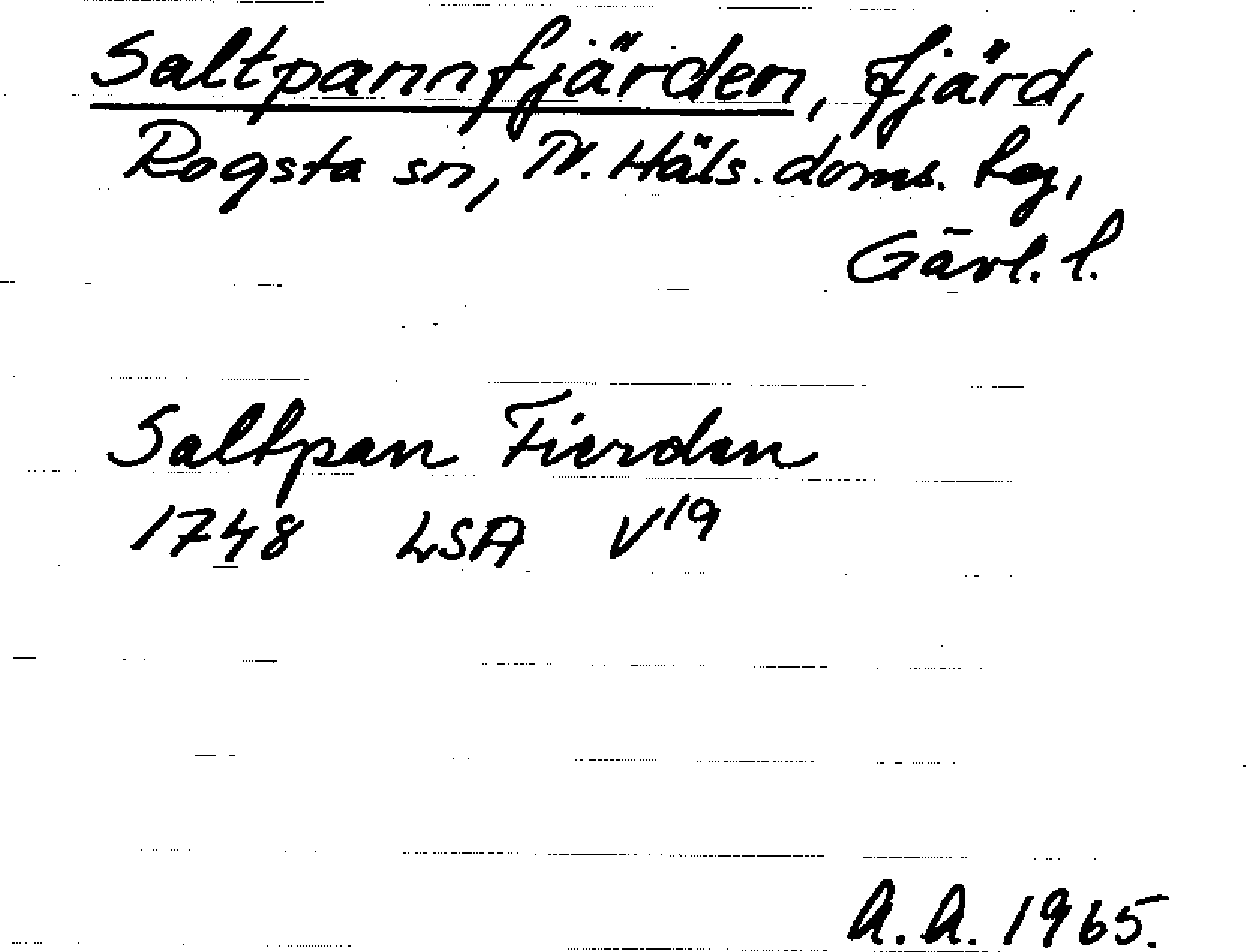 Saltpannfjärden, fjärd,
Rogsta sn, N. Häls. doms. hog,
Gävl. l.
Saltpan Fierden
1748 LSA V19
A.A. 1965.